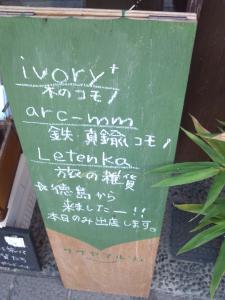 ivory+
木のコモノ
arc-mm
鉄・真鍮コモノ
Letenka
旅の雑貨
徳島から
来ましたー!!
本日のみ出店します。